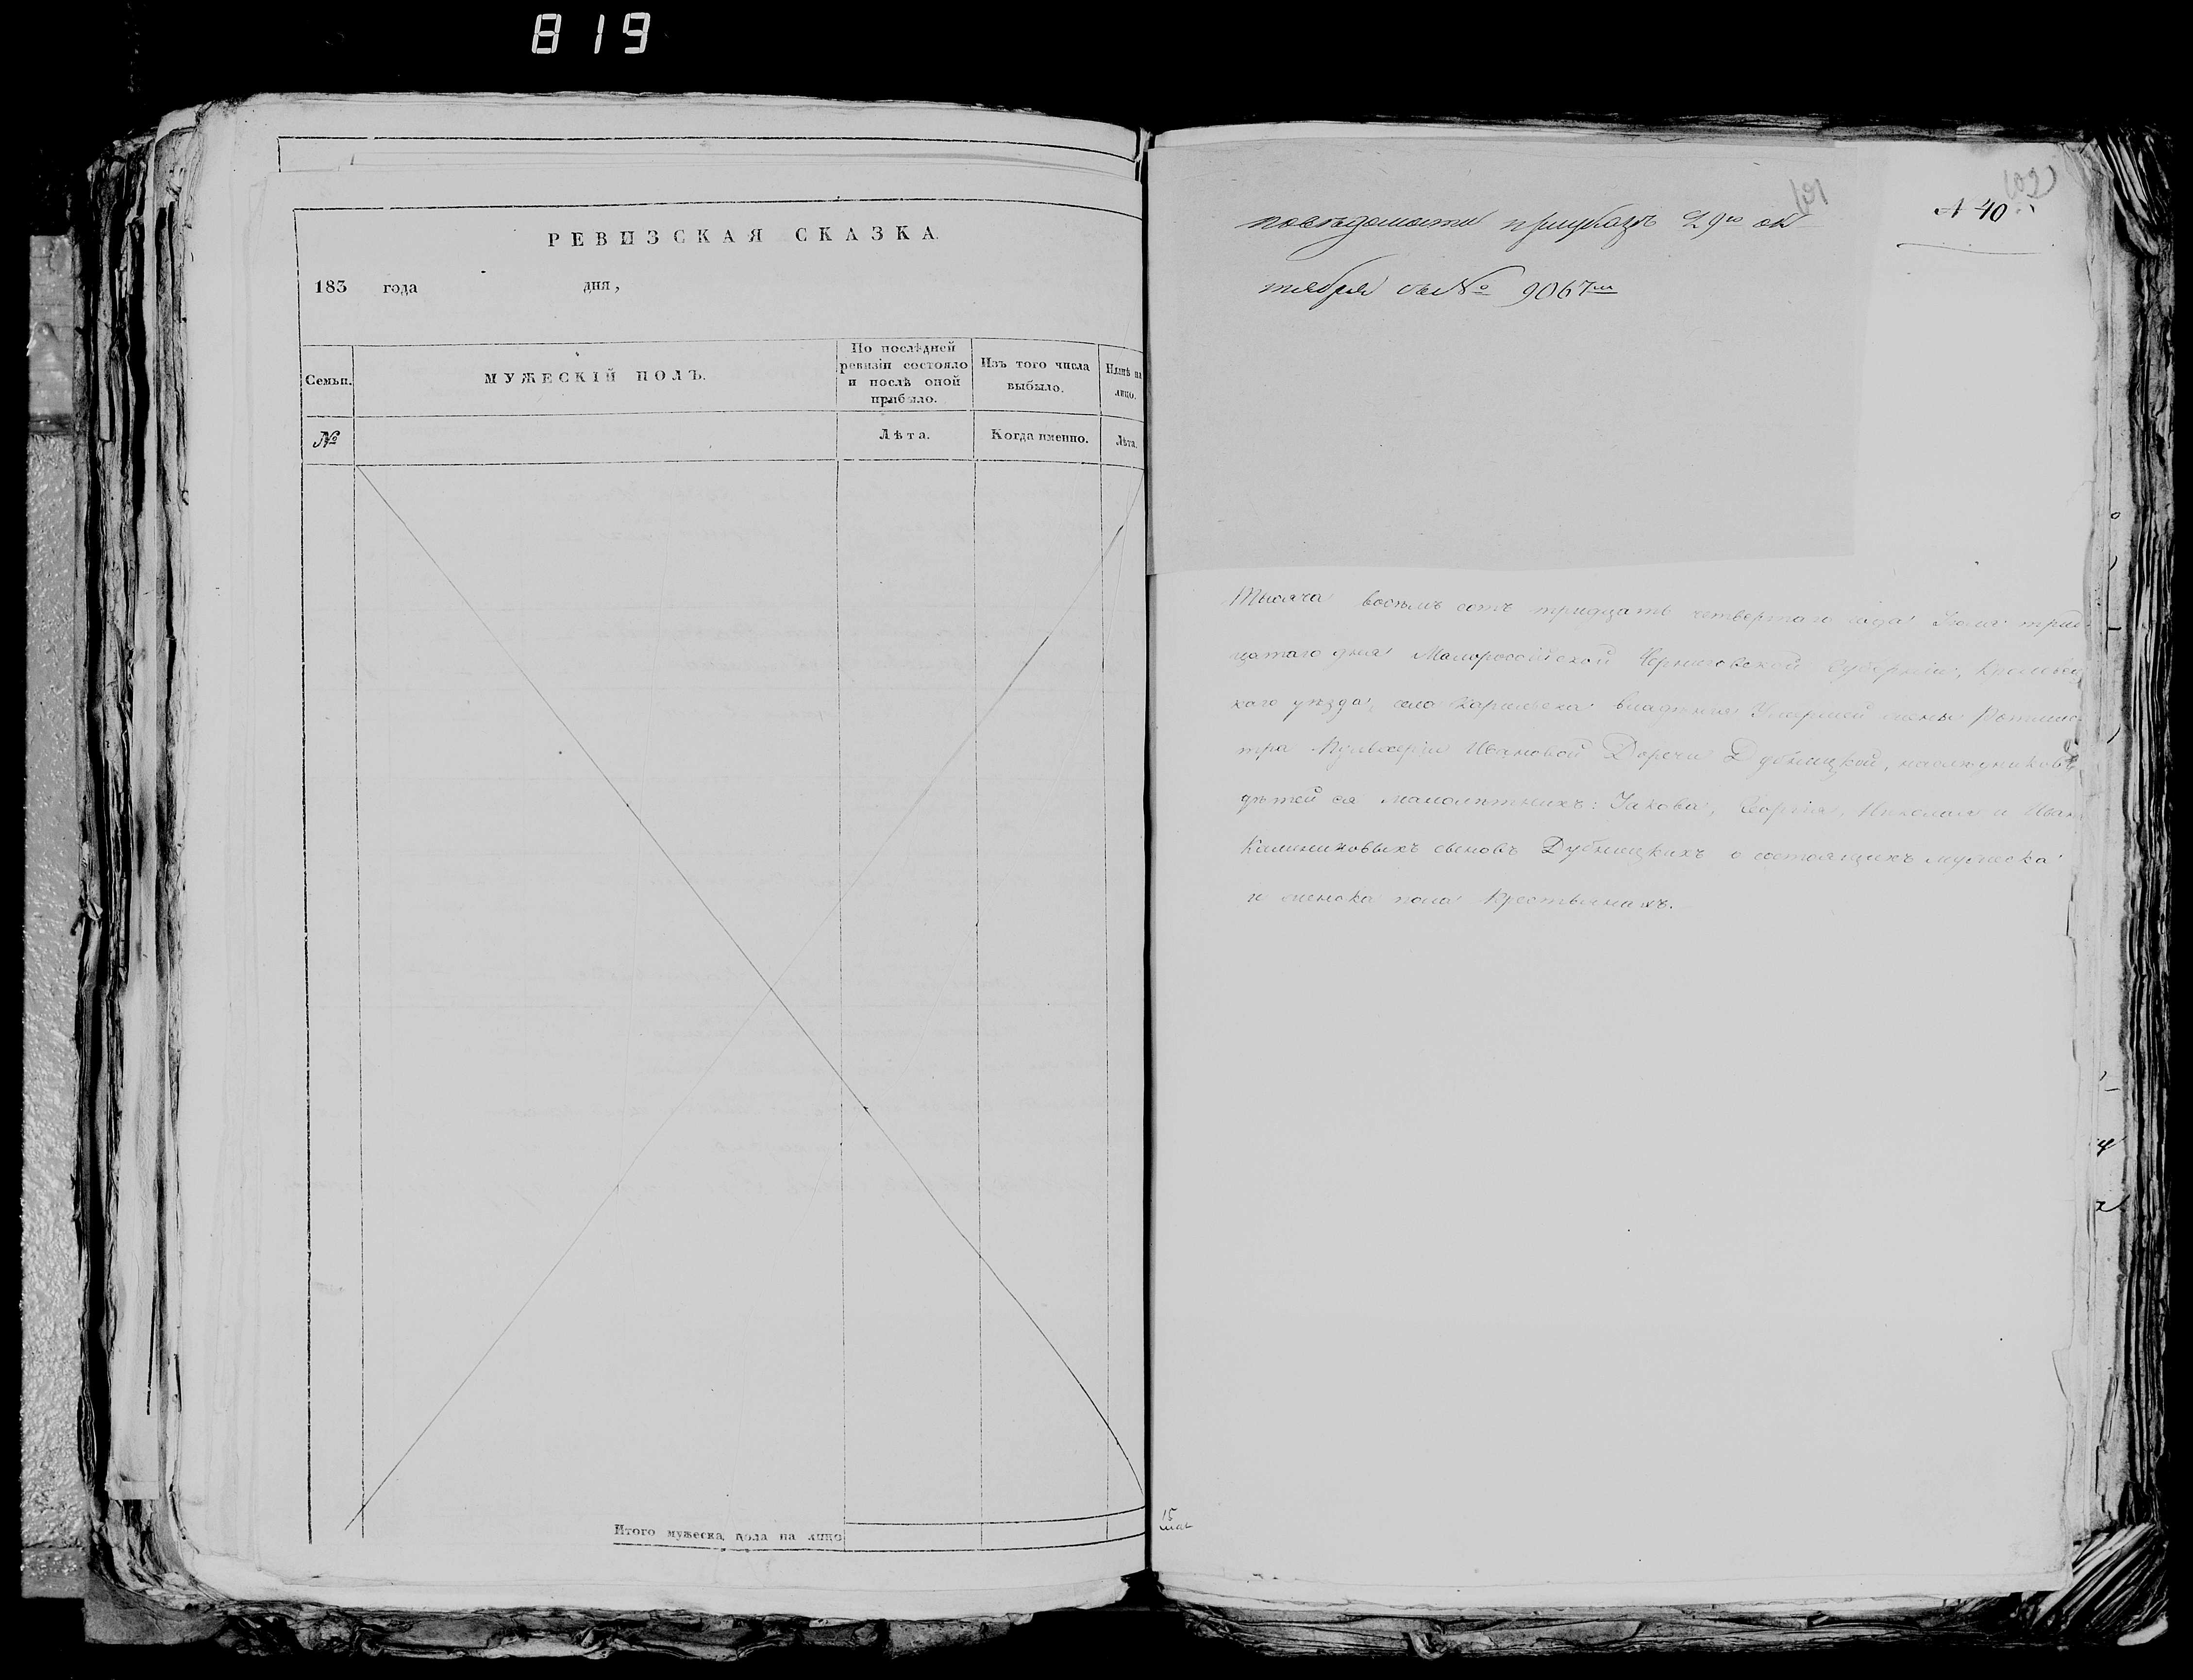 819
РЕВИЗСКАЯ СКАЗКА
183 года дня,
Семьи.
МУЖЕСКІЙ ПОЛЪ.
По послѣдней
ревизіи состояло
и послѣ оной
прибыло.
Изъ того числа
выбыло.
Нынѣ на
лицо.
№
Лѣта.
Когда именно.
Лѣта.
Итого мужеска пола на лицо
101
102
№ 40
29го ок
тября за № 9067м
Тысяча восемь сотъ тридцать четвертаго года Іюля трид
цатаго дня Малороссійской Черниговской Губерніи, Кролевец
каго уѣзда, села владѣнія Умершей жены Ротмис
тра Пульхеріи Ивановой Дочери Дубницкой, наслѣдниковъ
дѣтей ея малолѣтнихъ: Іакова, Николая и Ивана
сыновъ Дубницкихъ о состоящихъ мужеска
и женска пола Крестьянахъ.
15